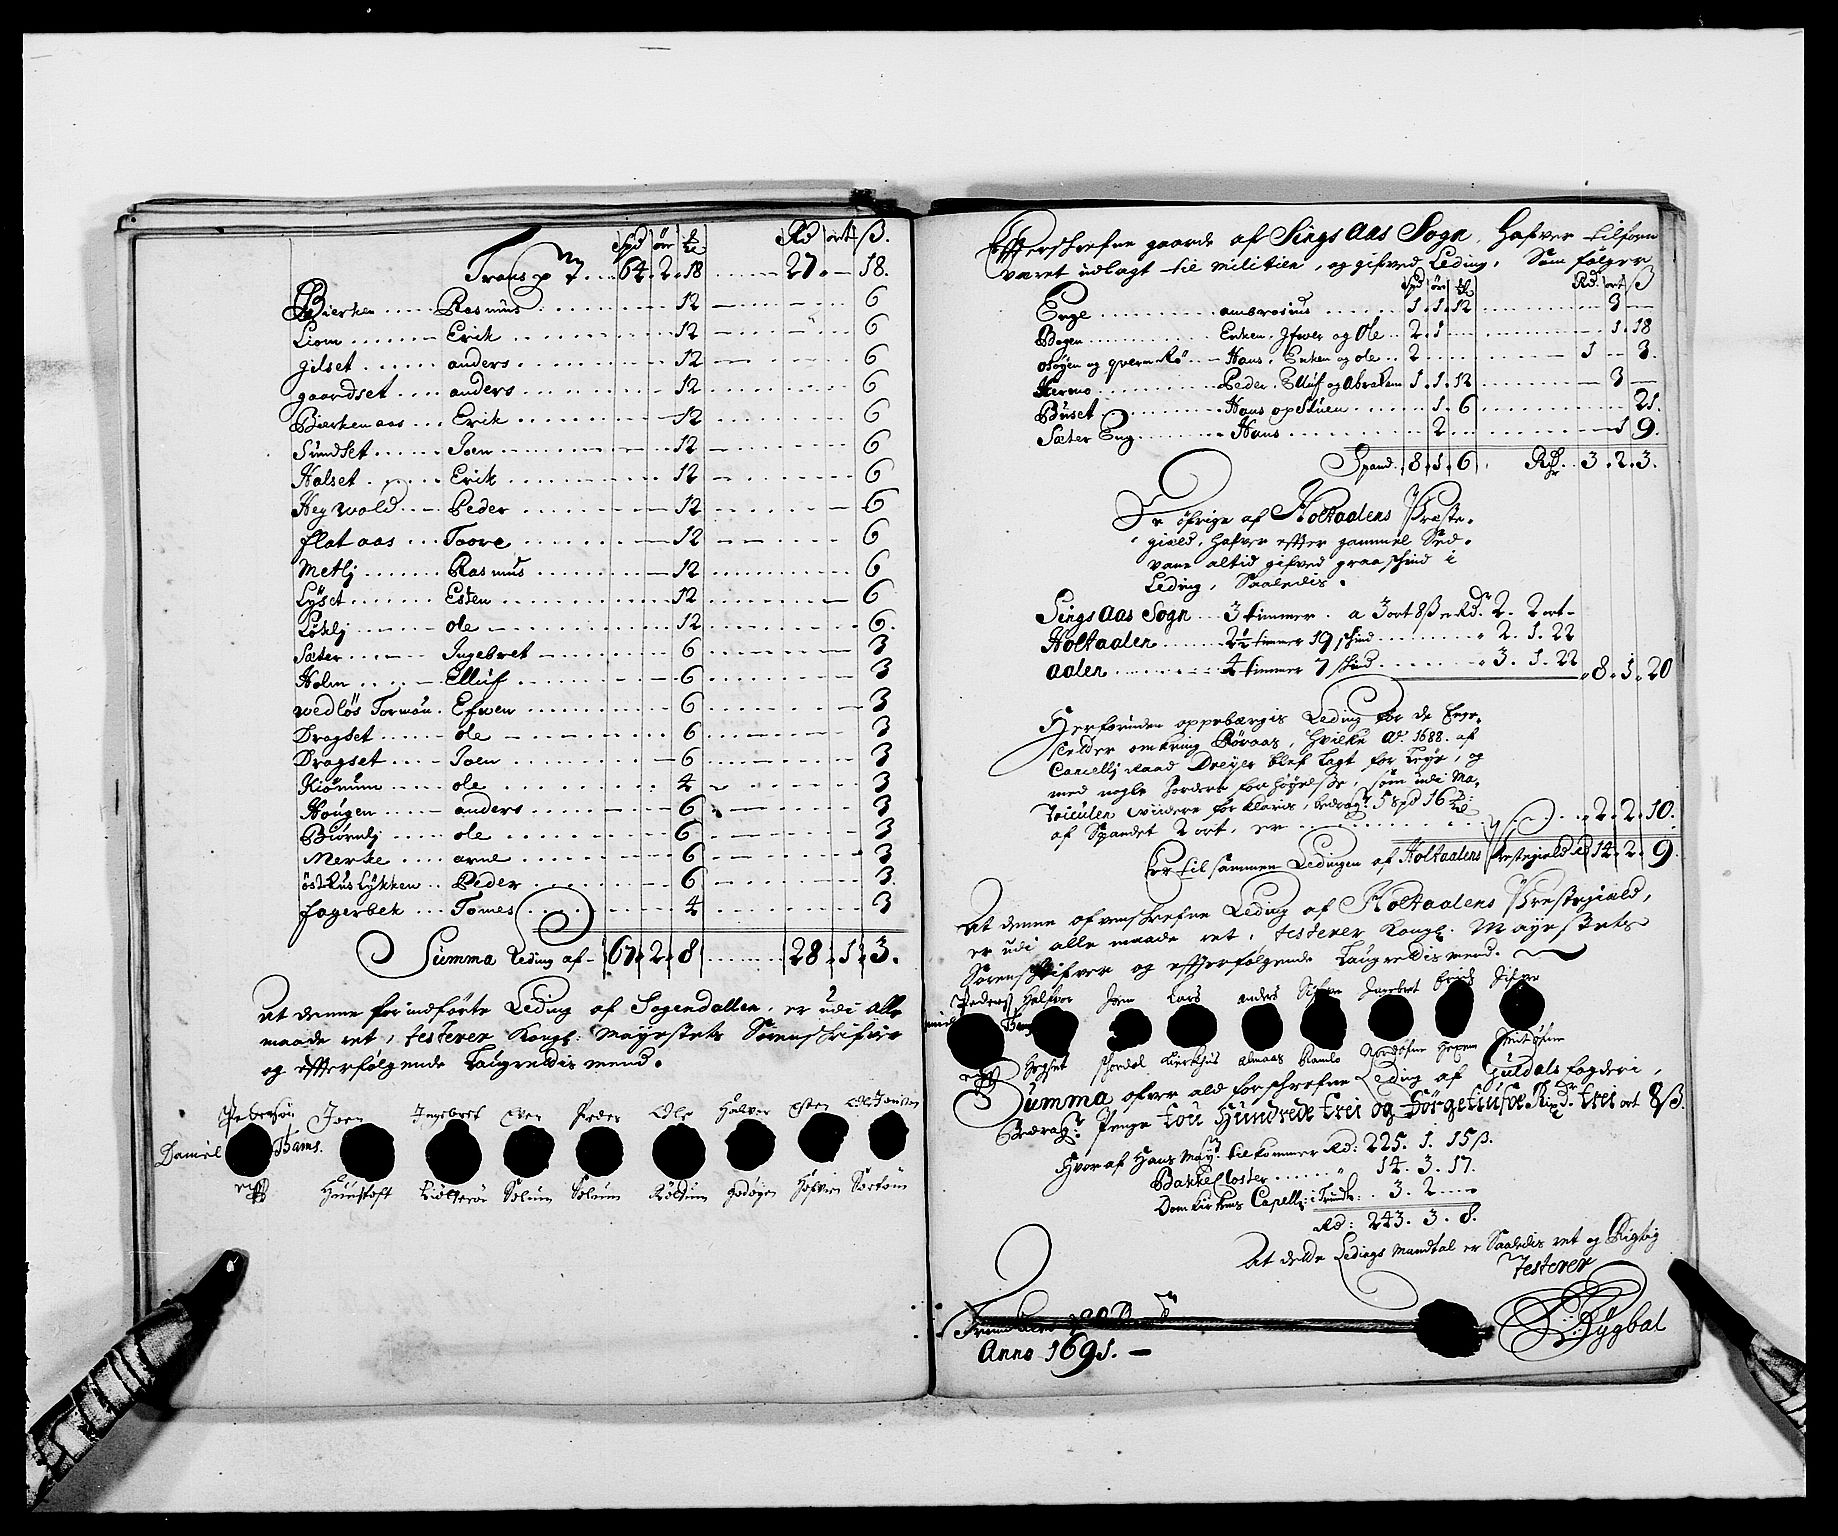 Spd ør Rd ort ß.
Transp 64. 2. 18 27. — 18.
Bierken Rasmus 12 6
Liom Erik 12 6
gilset anders 12 6
gaardset anders 12 6
Bierkenaas Erik 12 6
Sundset Joen 12 6
Halset Erik 12 6
Heg wold Peder 12 6
flat aas Toore 12 6
Metlj Rasmus 12 6
Lÿset Esten 12 6
Løklj ole 12 6.
Sæter Ingebret 6 3
Holm Elluf 6 3
wedløs Tormoü Efwen 6 3
Dragset ole 6 3
Dragset Joen 6 3
Kiönüm ole 4 3
Hougen anders 6 3
Biörnlj ole 6 3
Merke arne 6 3
östhus Lykken Peder 6 3.
fagerbek Tomes 4 3
Summa Leding af 67. 2. 8 28. 1. 3.
At denne forindførte Leding af Sogendallen, er udi alle
maade ret, testerer Kongl: Mayestets Sorenskrifver
og efterfølgende Laugrettis mend.
Pedersøn Joen Ingebret Efven Peder Ole Halvor Esten Ole Joensen
Daniel Bams.
Solum Solum Rödsüm godøyen Hofvien Sortøm
Efterskrefne gaarde af Sings Aas Sogn, Hafver tilforn
været udlagt til Militien, og gifved Leding, Som følger
Spd ør Rd. ort ß
Enge ambrosius 1. 1. 12 3 —
Bogen Enken, Jfwer og Ole 2. 1 1. 18
osøyen og qvernRö Hans, Enken og ole 2 1 — 3.
Hermo Peder, Elluf og Abraham 1. 1. 12 3 —
Büset Hans opstuen 1. 6 21.
Sæter Eng Hans 2 1 9.
Spand 8. 1. 6 Rdr 3. 2. 3.
De øfrige af Holtaalens Præste-
giæld, hafver efter gammel Sed-
vane altid gifved graaskind i
Leding, Saaledis.
Sings Aas Sogn 3 timmer a 3 ort 8 ß er Rd. 2. 2 ort -
Holtaalen 2½ timmer 19 skind 2. 1. 22
Aalen 4 timmer 7 skind 3. 1. 22 8. 1. 20
Herforuden oppebærgis Leding for de Enge-
sletter omkring Röraas, hvilke Ao. 1688. af
Cancellj Raad Dreyer blef lagt for Leye, og
med nogle Jorders forhøyelsse, som udi Ma-
triculen viidere forklaris, bedrag: 5 spd 16
af Spandet 2 ort, er 2. 2. 10.
Er til sammen Ledingen af Holtaalens Præstegiæld Rd 14. 2. 9.
At denne ofvenskrefne Leding af Holtaalens Præstegiæld,
er udi alle maade ret, testerer Kongl. Mayestets
Sorenskrifver og efterfølgende Laugrettismend.
Peders Halfvor Joen Lars anders Ingebret Erick
Bams
Hegset Kirkhus almaas Ramlo Hexem
Summa ofver ald forskrefne Leding af Guldals fogderi,
Bedrag: Penge tou Hundrede trei og förgetiufve Rixdr. trei ort 8 ß.
Hvoraf Hans May: tilkommer Rd: 225. 1. 15 ß.
Bakke Closter 14. 3. 17.
DomKirkens Capell: i Trundh: 3. 2 —
Rd: 243. 3. 8.
At dette Ledings Mandtal er Saaledis ret og Rigtig
testerer
Anno 1691. —
Bÿgbal